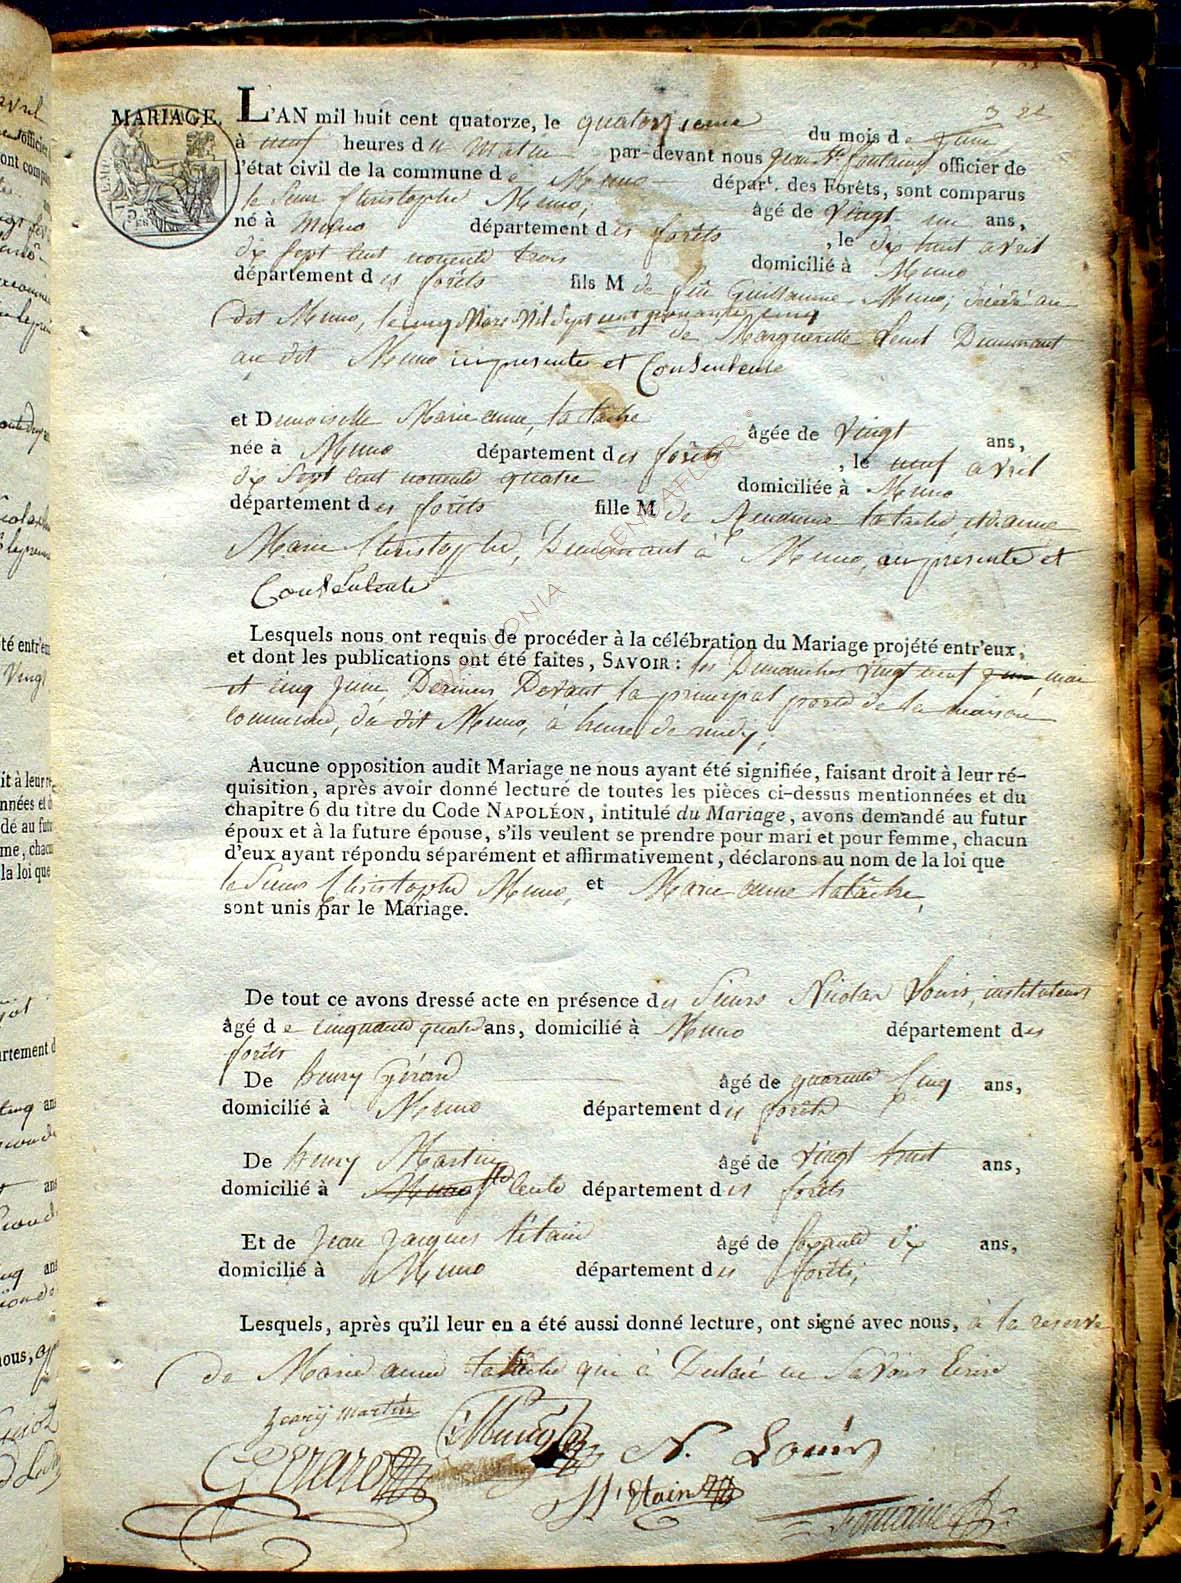 MARIAGE.
L'AN mil huit cent quatorze, le quatorzieme du mois de Juin
à neuf heures du Matin par-devant nous Jean Bte fontaine officier de
l'état civil de la commune de Muno départ. des Forêts, sont comparus
le Sieur Christophe Muno, âgé de vingt un ans,
né à Muno département des forêts, le dix huit avril
dix sept cent nonente trois domicilié à Muno
département des forêts fils M de feu Guillaume Muno, décédé au
dit Muno, le cinq Mars Mil Sept cent nonante cinq
et de Marguerite Demeurant
au dit Muno ici presente et Consentente
et Dmoiselle Marie anne, la tache âgée de Vingt ans,
née à Muno département des forêts, le neuf avril
dix Sept cent nonente quatre domiciliée à Muno
département des forêts fille M de la tache, et de anne
Marie Christophe, Demeurant à Muno, ici presente et
Consentente
Lesquels nous ont requis de procéder à la célébration du Mariage projété entr'eux,
et dont les publications ont été faites, SAVOIR : les Dimanches vingt neuf juin, mai
et cinq Juin, Derniers Devant la principal porte de la maison
commune, du dit Muno, à heure de midy,
Aucune opposition audit Mariage ne nous ayant été signifiée, faisant droit à leur ré-
quisition, après avoir donné lecture de toutes les pièces ci-dessus mentionnées et du
chapitre 6 du titre du Code NAPOLÉON, intitulé du Mariage, avons demandé au futur
époux et à la future épouse, s'ils veulent se prendre pour mari et pour femme, chacun
d'eux ayant répondu séparément et affirmativement, déclarons au nom de la loi que
le Sieur Christophe Muno, et Marie anne latache,
sont unis par le Mariage.
De tout ce avons dressé acte en présence des Sieurs Nicolas Louis, instituteur
âgé de cinquante quatre ans, domicilié à Muno département des
forêts
De henry Gérard âgé de quarente Cinq ans,
domicilié à Muno département des forêts
De henry Martin âgé de vingt huit ans,
domicilié à Muno département des forêts
Et de Jean Jacques titain âgé de soixante dix ans,
domicilié à Muno département des forêts,
Lesquels, après qu'il leur en a été aussi donné lecture, ont signé avec nous, à la reserve
de Marie anne latache qui à Declaré ne Savoir Ecrire
henry martin
Muno
Gerard
N. Louis
fontaine